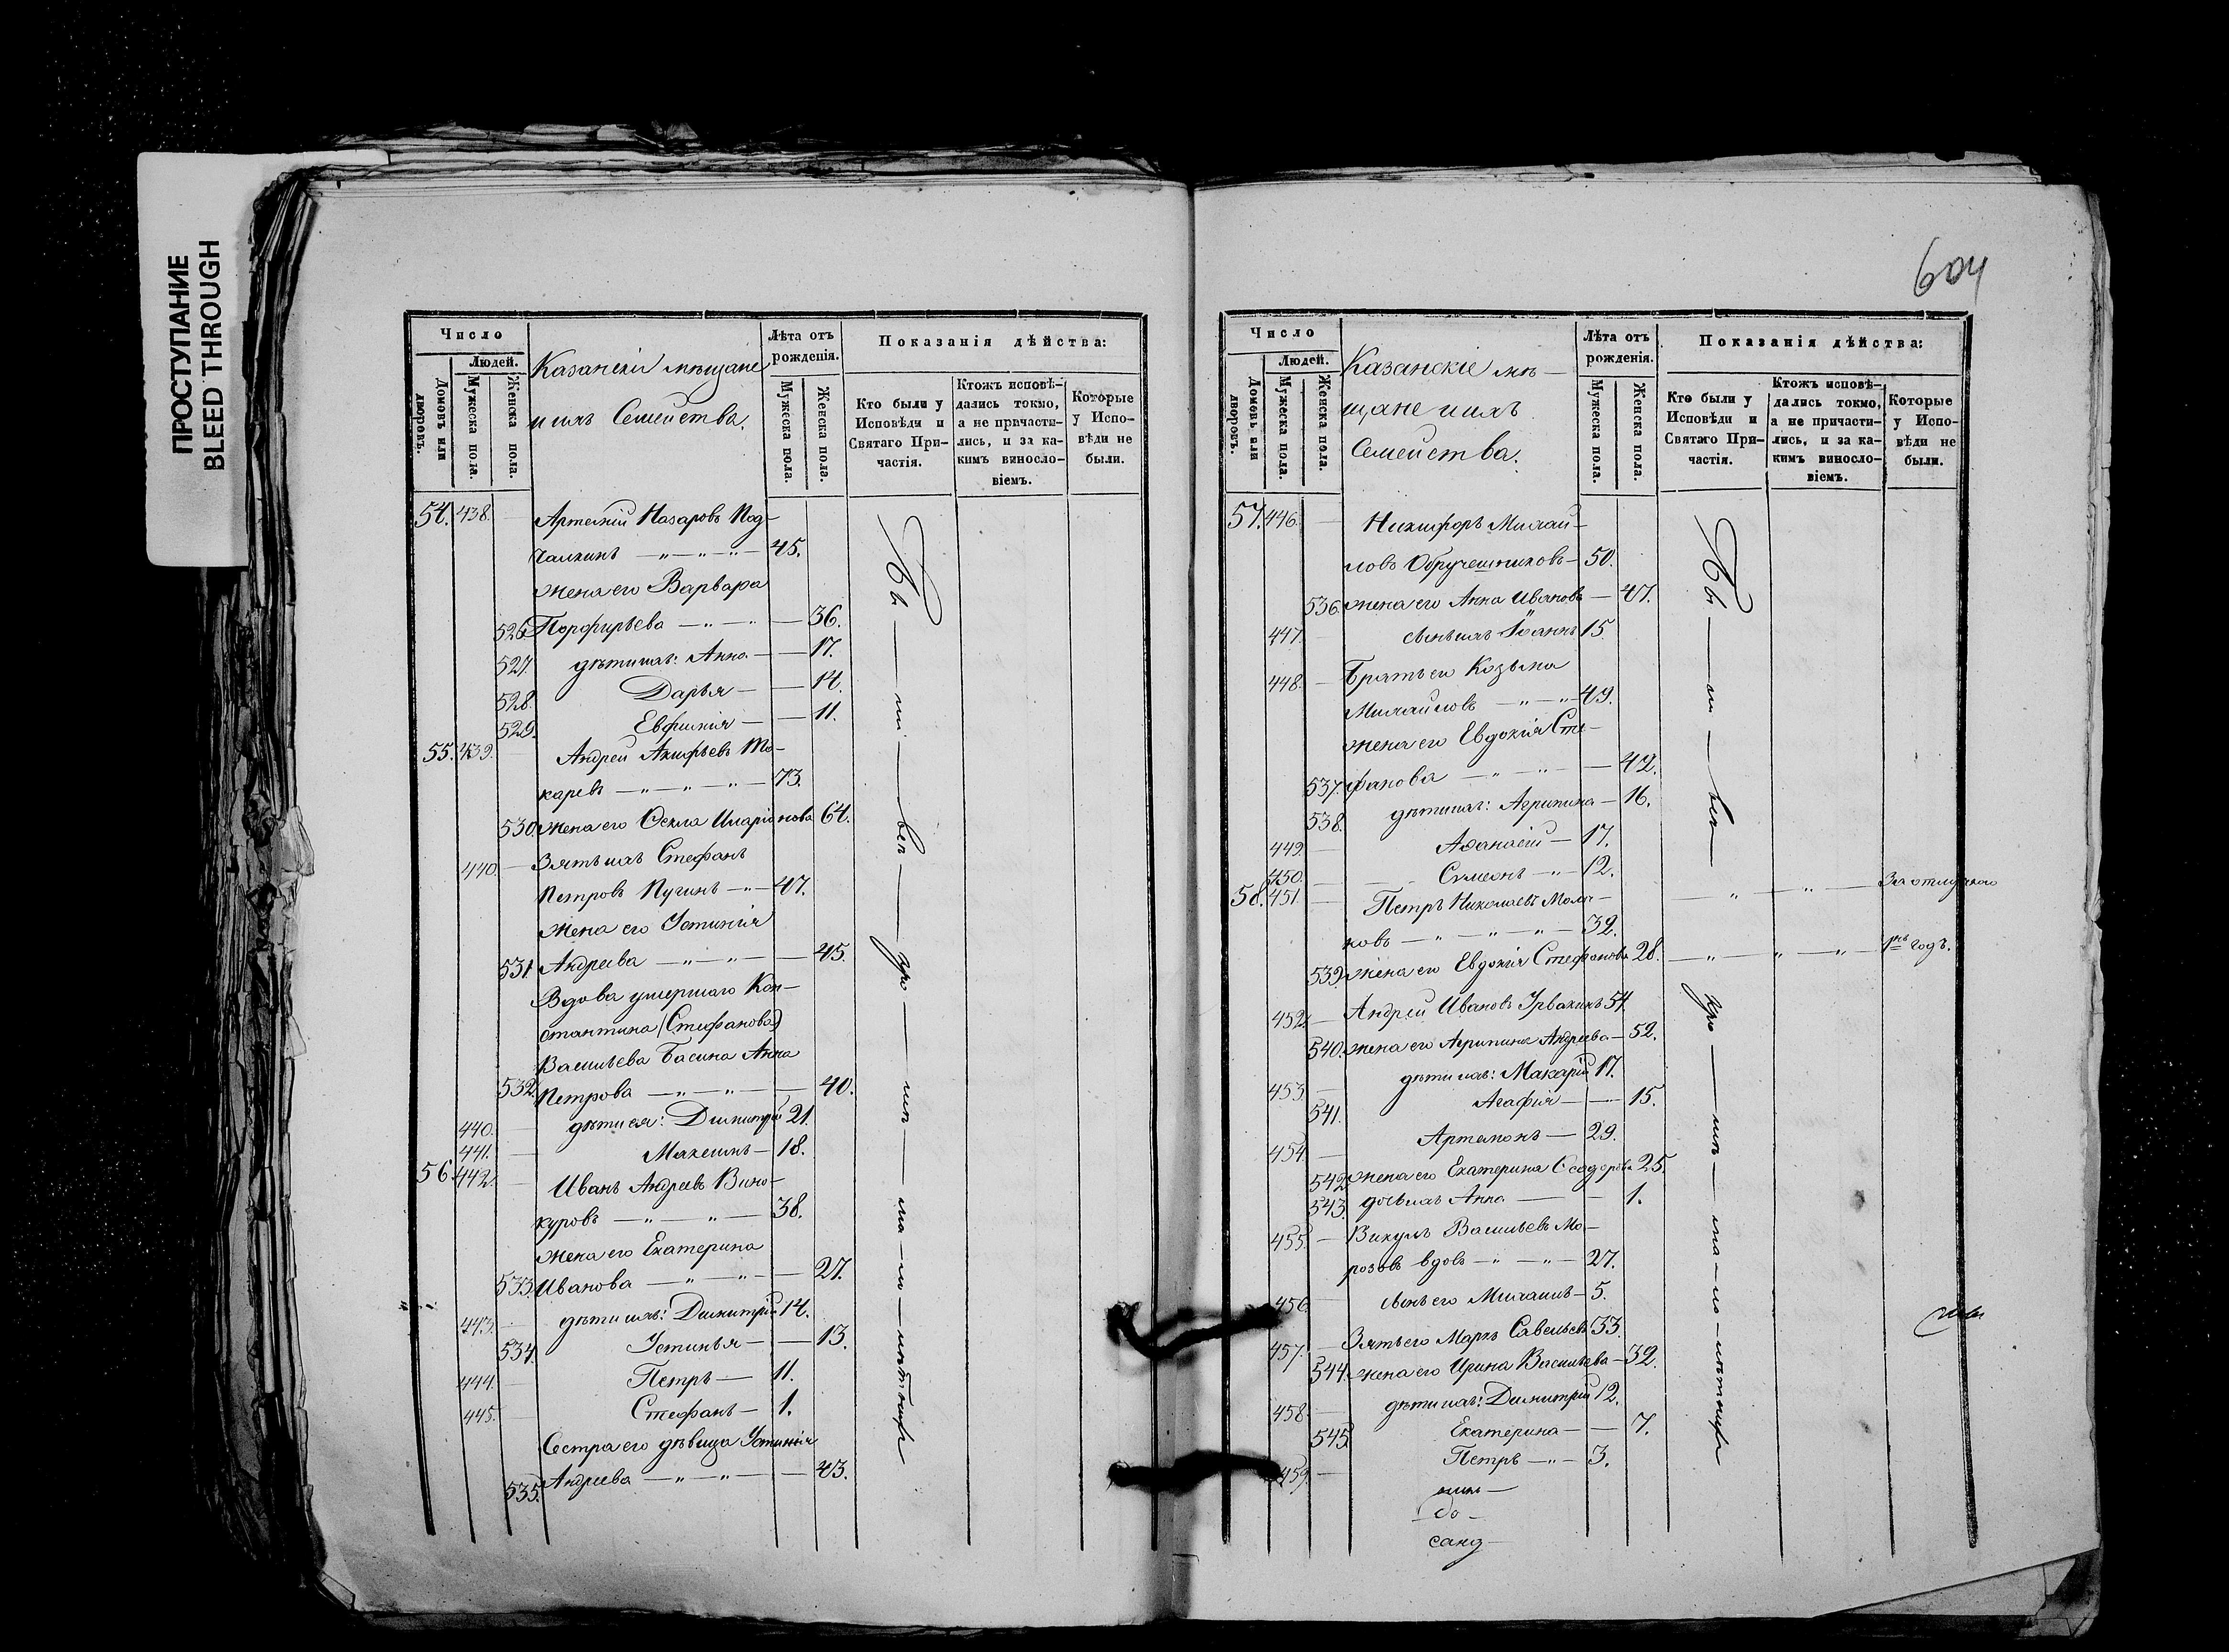 ПРОСТУПАНИЕ
BLEED THROUGH
Число
Людей.
Домовъ или дворовъ.
Мужеска пола.
Женска пола.
Казанскіи мѣщане
и ихъ Семейства.
Лѣта отъ рожденія.
Мужеска пола.
Женска пола.
Показанія дѣйства:
Кто были у Исповѣди и Святаго Причастія.
Ктожъ исповѣдались токмо, а не причастились, и за какимъ винословіемъ.
Которые у Исповѣди не были.
54. 438. Артемій Назаровъ Под-
чалкинъ 45.
жена его Варвара
526 Порфирьева 36.
527. дѣти ихъ: Анна 17.
528. Дарья 14.
529. Евфимія 11.
55. 439. Андрей Акифьевъ То-
карев 73.
530. жена его Ѳекла Иларіонова 64.
440. Зять ихъ Стефанъ
Петровъ Пугинъ 47.
жена его Устинія
531. Андреева 45.
Вдова умершаго Кон-
стантина (Стефанова)
Васильева Басина Анна
532. Петрова 40.
440. дѣти ея: Димитрій 21.
441. Максимъ 18.
56. 442. Иванъ Андреевъ Вино-
куровъ 38.
жена его Екатерина
533. Иванова 27.
443. дѣти ихъ: Димитрій 14.
534. Устинья 13.
444. Петръ 11.
445. Стефанъ 1.
Сестра его дѣвица Устинія
535. Андреева 43.
604
Число
Людей.
Домовъ или дворовъ.
Мужеска пола.
Женска пола.
Казанскіе мѣ-
щане и ихъ
Семейства.
Лѣта отъ рожденія.
Мужеска пола.
Женска пола.
Показанія дѣйства:
Кто были у Исповѣди и Святаго Причастія.
Ктожъ исповѣдались токмо, а не причастились, и за какимъ винословіемъ.
Которые у Исповѣди не были.
57. 446. Никифоръ Михай-
ловъ Обручешниковъ 50.
536. жена его Анна Иванова 47.
447. сынъ ихъ Іоаннъ 15.
448. Братъ его Козьма
Михайловъ 49.
жена его Евдокія Сте-
537. фанова 42.
538. дѣти ихъ: Агрипина 16.
449. Аѳанасій 17.
450. Сѵмеонъ 12.
58. 451. Петръ Николаевъ Моло-
ковъ 32. За отлучкою
539. жена его Евдокія Стефанова 28. 1й годъ.
452. Андрей Ивановъ Урвахинъ 54.
540. жена его Агрипина Андреева 52.
453. дѣти ихъ: Макарій 17.
541. Агафія 15.
454. Артемонъ 29.
542. жена его Екатерина Ѳеодорова 25.
543. дочь ихъ Анна 1.
455. Викулъ Васильевъ Мо-
розовъ вдовъ 27.
456. сынъ его Михаилъ 5.
457. Зять его Маркъ Савельевъ 33.
544. жена его Ирина Васильева 32.
458. дѣти ихъ: Димитрій 12.
545. Екатерина 7.
459. Петръ 3.